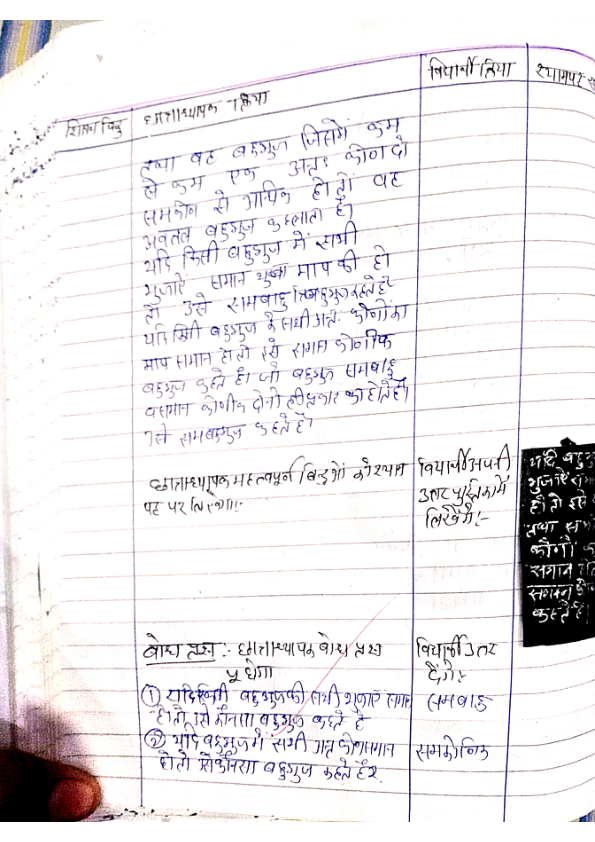 शिक्षण बिंदु छात्राध्यापक क्रिया विद्यार्थी क्रिया श्यामपट
तथा वह बहुभुज जिसमें कम
से कम एक अन्तः कोण दो
समकोण से अधिक हो तो वह
अवतल बहुभुज कहलाता है।
यदि किसी बहुभुज में सभी
भुजाएँ समान माप की हो
तो उसे समबाहु बहुभुज कहते हैं
यदि किसी बहुभुज के सभी अन्तः कोणों का
माप समान हो तो उसे समान कोणिक
बहुभुज कहते है। जो बहुभुज समबाहु
व समान कोणीक दोनों ही प्रकार का होते है।
उसे समबहुभुज कहते है।
छात्राध्यापक महत्वपूर्ण बिन्दुओं को श्याम
पट पर लिखेगा:-
विद्यार्थी अपनी
उत्तर पुस्तिका में
लिखेंगे:-
यदि बहु
भुजाएँ स
हो तो उसे
तथा सभ
कोणों क
समान हो
समान को
कहते है।
बोध प्रश्न :- छात्राध्यापक बोध प्रश्न
पूछेगा
विद्यार्थी उत्तर
देंगे:-
① यदि किसी बहुभुज की सभी भुजाएं समान
हो तो उसे कौनसा बहुभुज कहते है
समबाहु
② यदि बहुभुज में सभी अन्त कोण समान
हो तो उसे कौनसा बहुभुज कहते है?
समकोणिक